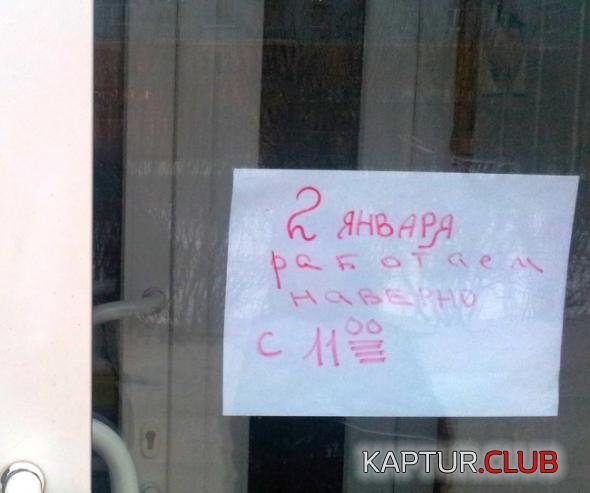 2 ЯНВАРЯ
работаем
НАВЕРНО
С 11 00
KAPTUR.CLUB